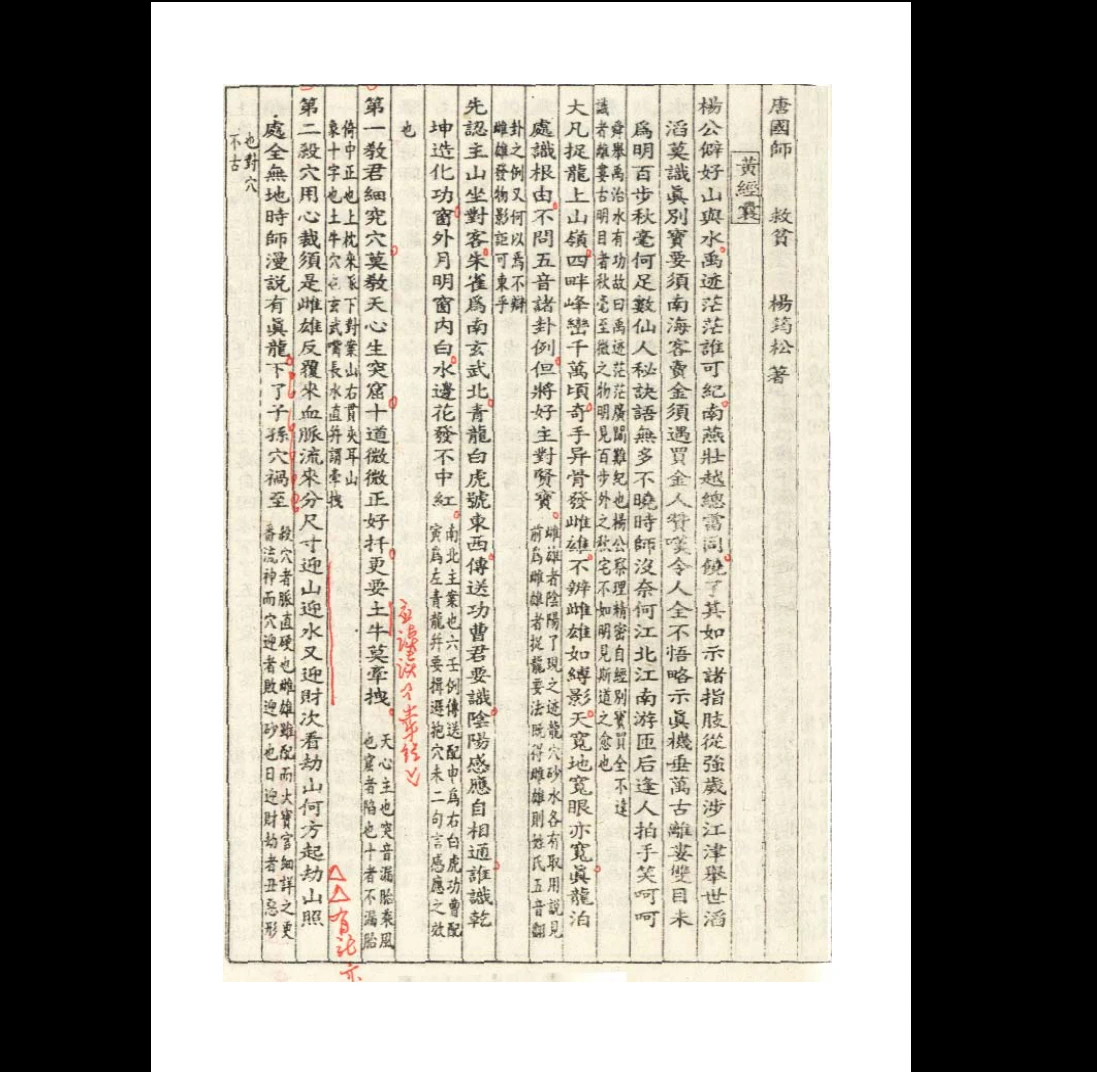 唐國師 救貧 楊筠松著
黃經囊
楊公僻好山與水禹迹茫茫誰可紀南燕壯越總當同饒了其如示諸指肢從強歲涉江津舉世滔
滔莫識眞別寶要須南海客賣金須遇買金人贊嘆令人全不悟略示眞機垂萬古離婁雙目未
爲明百步秋毫何足數仙人秘訣語無多不曉時師沒奈何江北江南游匝后逢人拍手笑呵呵
舜舉禹治水有功故曰禹迹茫茫廣闊難紀也楊公察理精密自經別寶買全不達
識者離婁古明目者秋毫至微之物明見百步外之秋宅不如明見斯道之愈也
大凡捉龍上山嶺四畔峰巒千萬頃奇手异骨發雌雄不辨雌雄如縛影天寬地寬眼亦寬眞龍泊
處識根由不問五音諸卦例但將好主對賢賓
雌雄者陰陽了現之迹龍穴砂水各有取用說見
前爲雌雄者捉龍要法既得雌雄則姓氏五音翻
卦之例又何以爲不辯
雌雄發物影詎可東乎
先認主山坐對客朱雀爲南玄武北青龍白虎號東西傳送功曹君要識陰陽感應自相通誰識乾
坤造化功窗外月明窗内白水邊花發不中紅
南北主案也六壬例傳送配申爲右白虎功曹配
寅爲左青龍并要揖遜抱穴未二句言感應之效
也
第一教君細究穴莫教天心生突窟十道微微正好扦更要土牛莫牽拽
天心主也突音漏胎乘風
也窟者陷也十者不漏胎
倚中正也上枕來脈下對案山右貫夾耳山
象十字也土牛穴也玄武嘴長水直并謂牽拽
第二殺穴用心裁須是雌雄反覆來血脈流來分尺寸迎山迎水又迎財次看劫山何方起劫山照
處全無地時師漫説有眞龍下了子孫穴禍至
殺穴者脈直硬也雌雄雖配而大寶宮細詳之更
番流神而穴迎者敗迎砂也日迎財劫者丑惡形
也對穴
不古